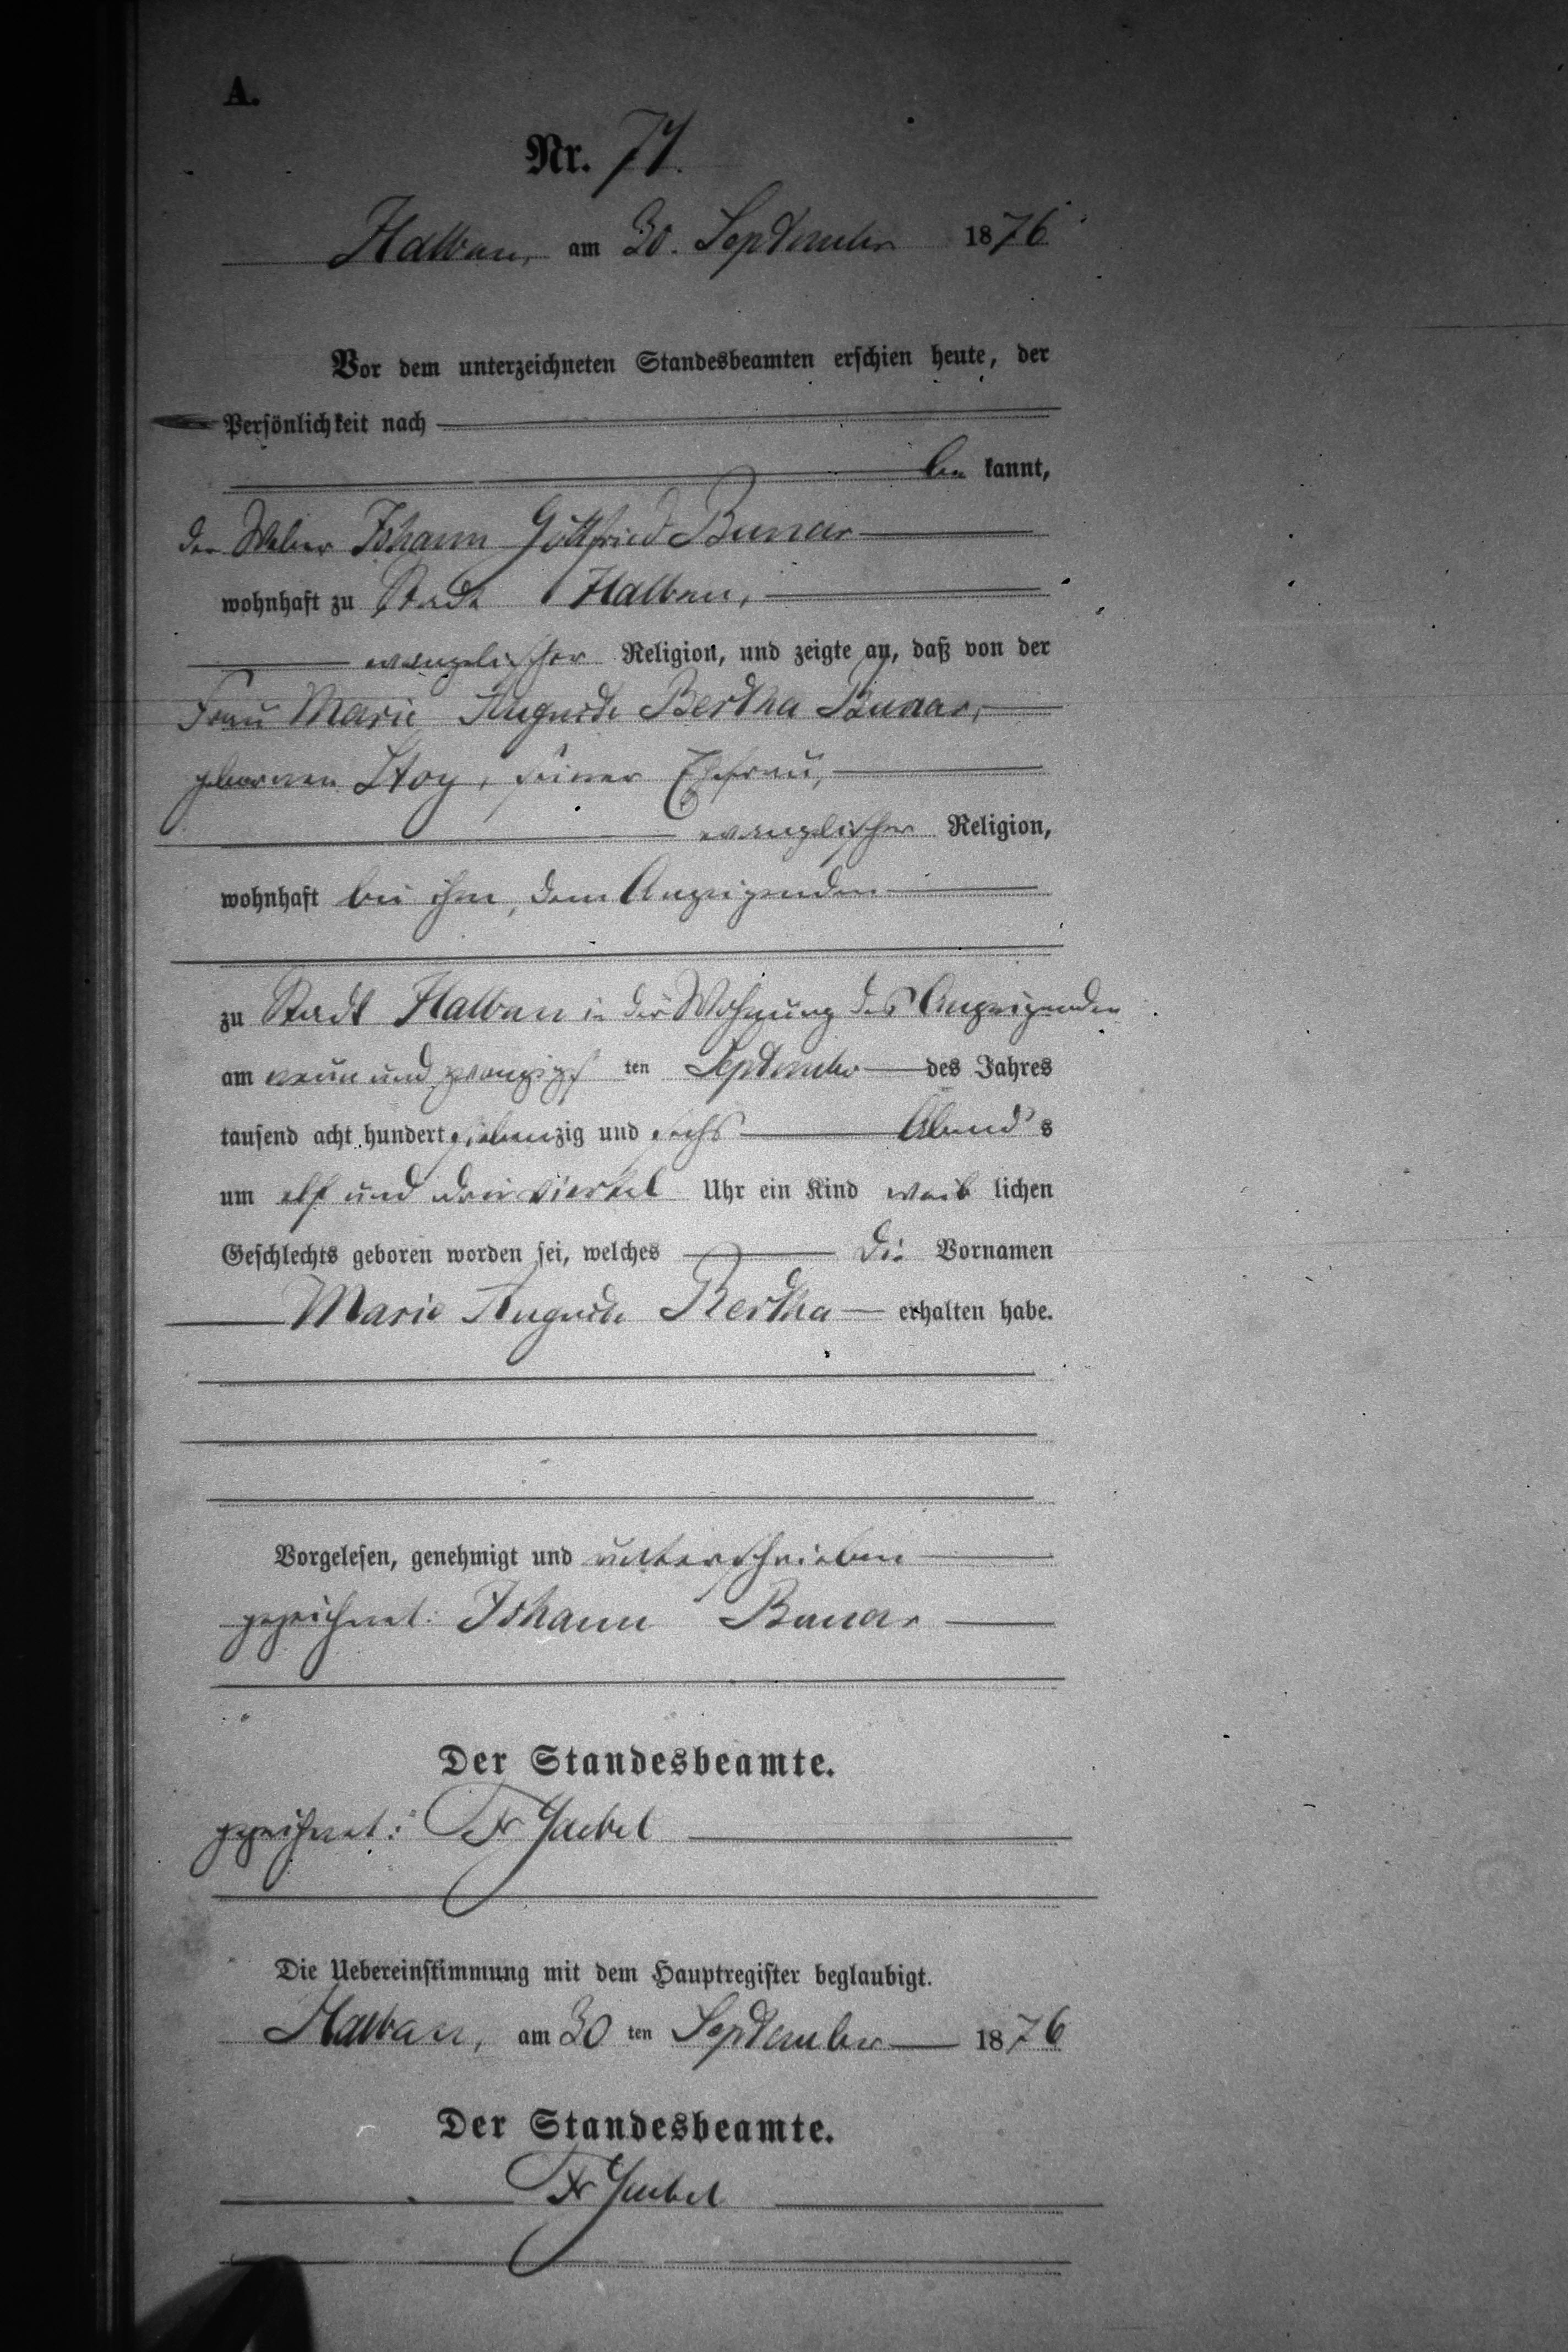 A.
Nr. 71.
Halbau, am 30. September 1876
Vor dem unterzeichneten Standesbeamten erschien heute, der
Persönlichkeit nach
be kannt,
der Weber Johann Gottfried Bunar
wohnhaft zu Stadt Halbau,
evangelischer Religion, und zeigte an, daß von der
Frau Marie Auguste Bertha Bunar,
gebornen Stoy, seiner Ehefrau,
evanglischer Religion,
wohnhaft bei ihm, dem Anzeigenden
zu Stadt Halbau in der Wohnung des Anzeigenden
am neun und zwanzigs ten September des Jahres
tausend acht hundert siebenzig und sechs Abend's s
um elf und drei viertel Uhr ein Kind weib lichen
Geschlechts geboren worden sei, welches die Vornamen
Marie Auguste Bertha erhalten habe.
Vorgelesen, genehmigt und unterschrieben
gezeichnet: Johann Bunar
Der Standesbeamte.
gezeichnet: Fr
Die Uebereinstimmung mit dem Hauptregister beglaubigt.
Halbau, am 30 ten September 1876
Der Standesbeamte.
Fr